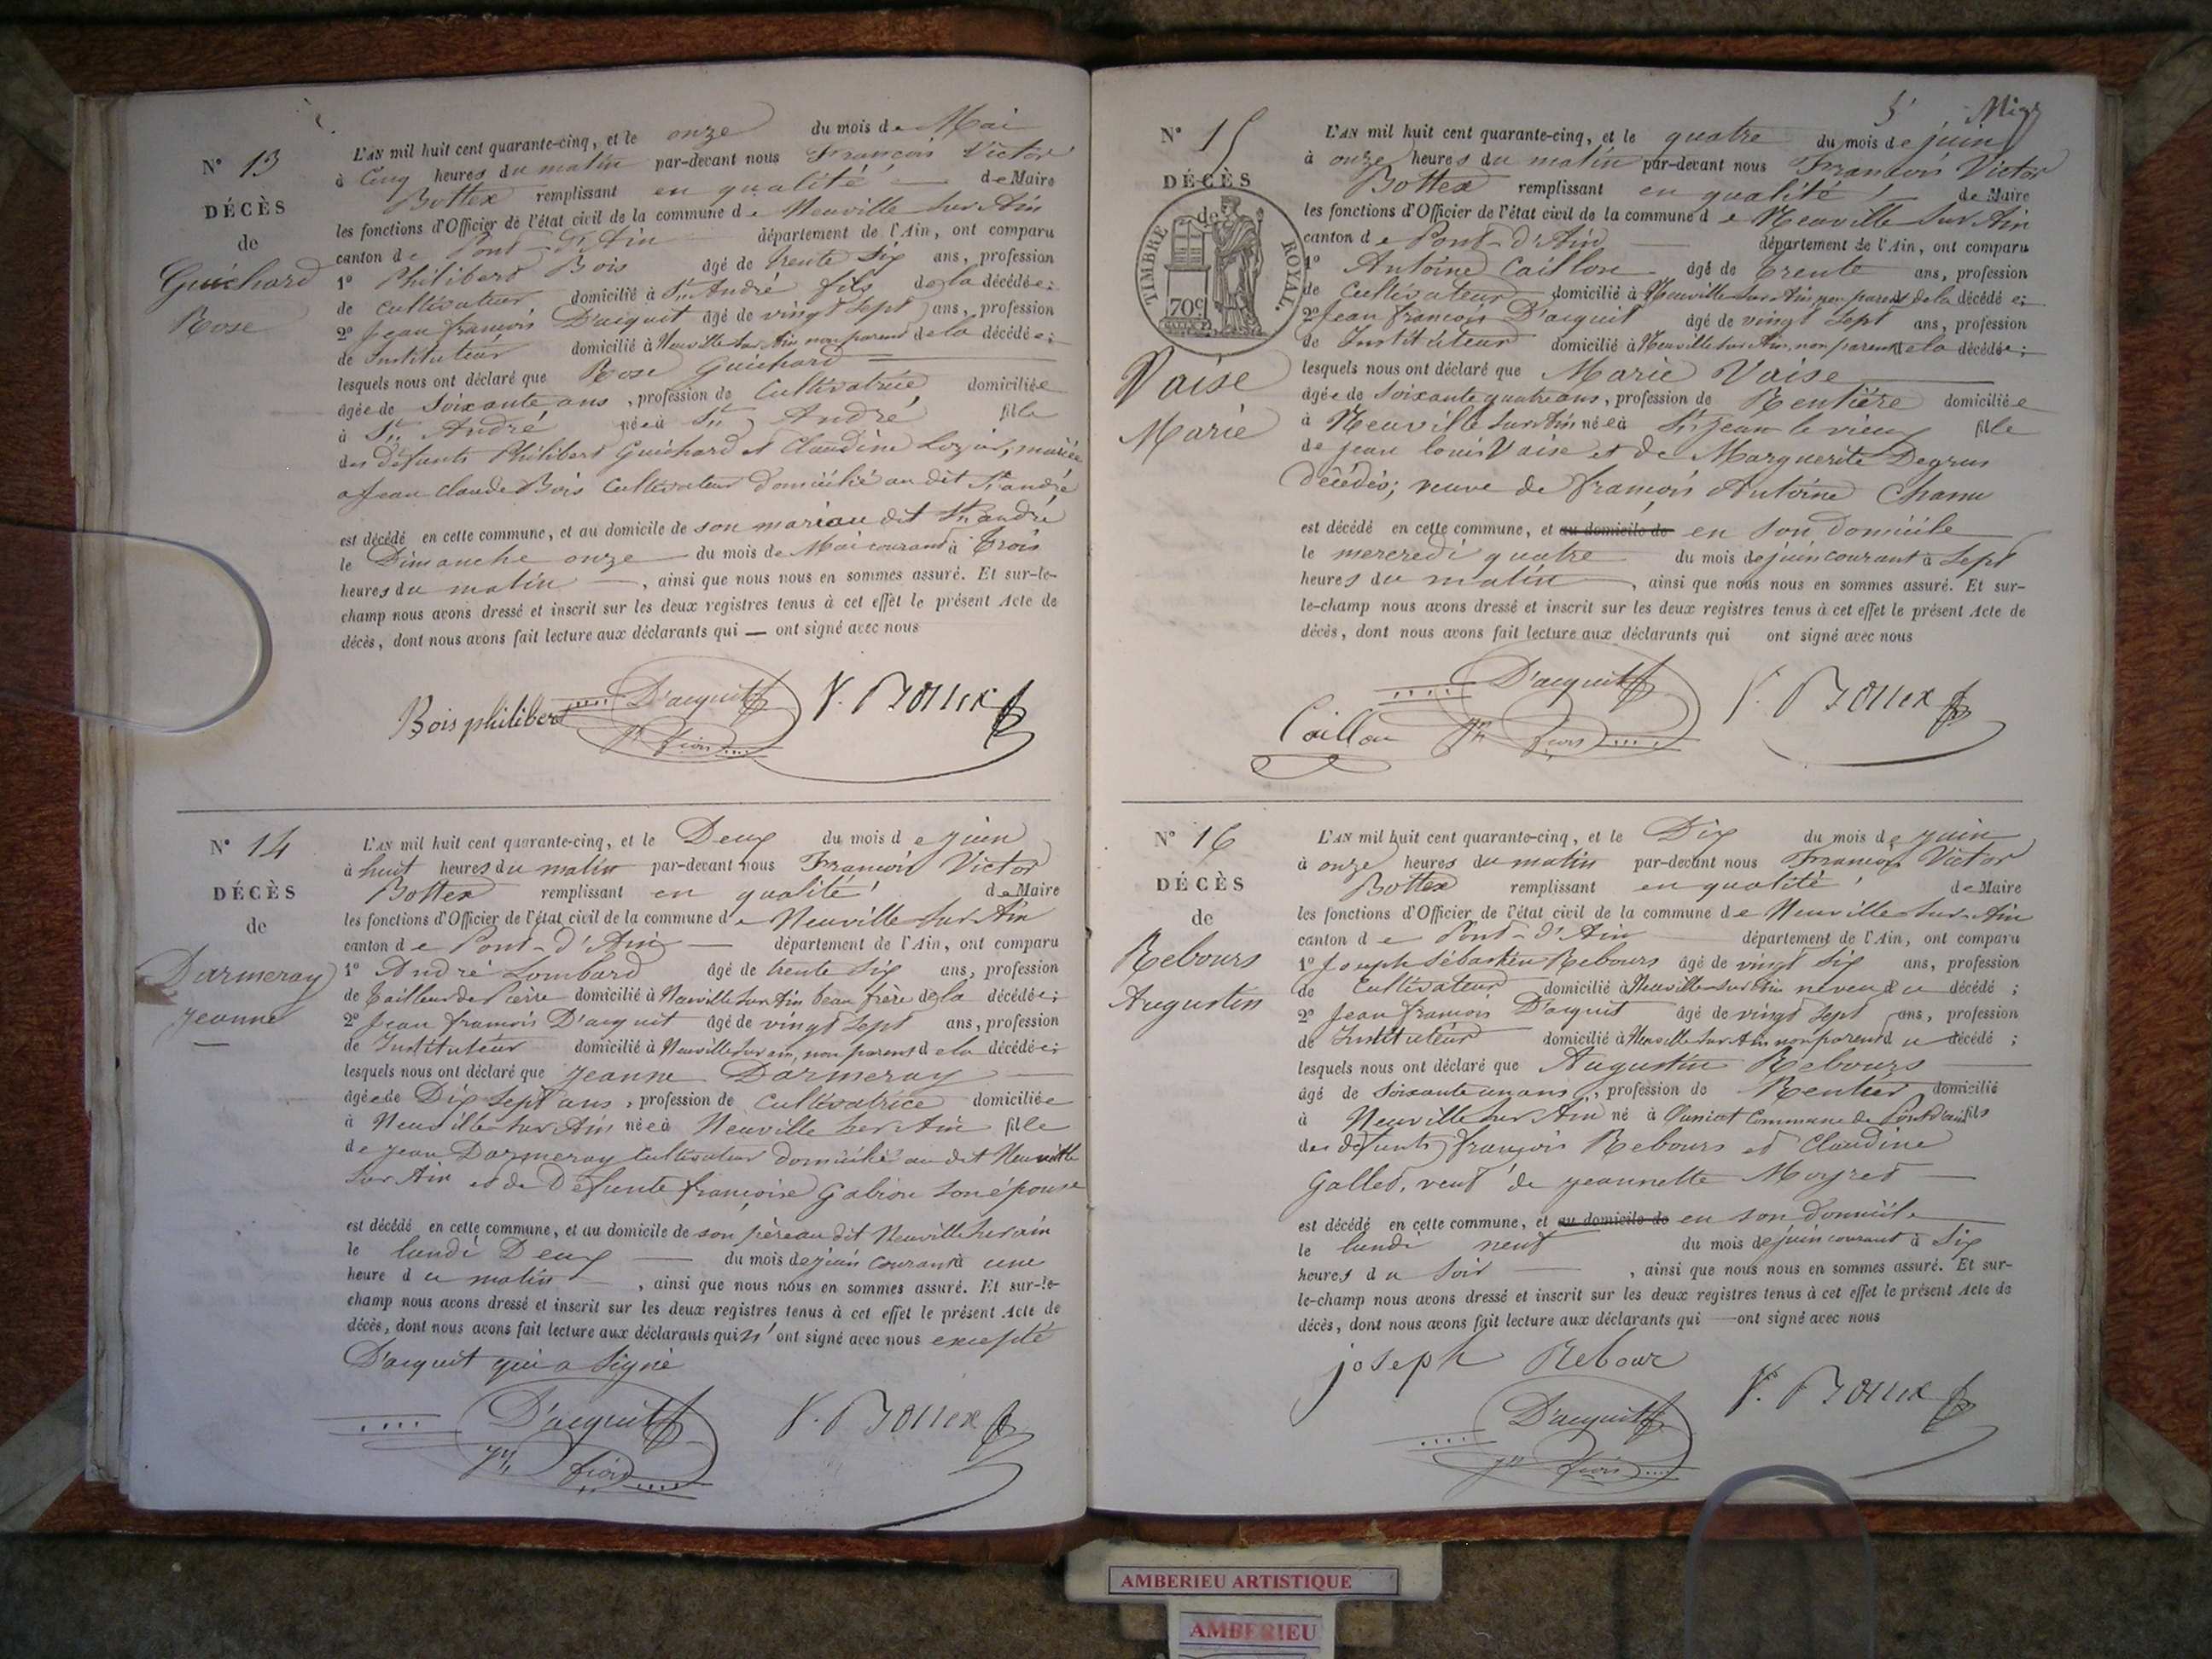 N° 13
DÉCÈS
de
Guichard
Rose
L'AN mil huit cent quarante-cinq, et le onze du mois de Mai
à Cinq heures du matin par-devant nous François Victor
Bottex remplissant en qualité de Maire
les fonctions d'Officier de l'état civil de la commune de Neuville sur Ain
canton de Pont-d'Ain département de l'Ain, ont comparu
1° Philibert Bois âgé de trente six ans, profession
de cultivateur domicilié à St André fils de la décédée;
2° Jean françois D'acquit âgé de vingt sept ans, profession
de Instituteur domicilié à Neuville sur Ain non parent de la décédée;
lesquels nous ont déclaré que Rose Guichard
âgée de Soixante ans, profession de Cultivatrice domiciliée
à St André née à St André fille
des défunts Philibert Guichard et Claudine mariée
a Jean claude Bois Cultivateur domicilié au dit St andré
est décédé en cette commune, et au domicile de son mari au dit St andré
le Dimanche onze du mois de Mai courant à Trois
heures du matin, ainsi que nous nous en sommes assuré. Et sur-le-
champ nous avons dressé et inscrit sur les deux registres tenus à cet effet le présent Acte de
décès, dont nous avons fait lecture aux déclarants qui — ont signé avec nous
Bois philibert D'acquit V. Bottex
Jn fçois
N° 14
DÉCÈS
de
Darmeray
Jeanne
L'AN mil huit cent quarante-cinq, et le Deux du mois de juin
à huit heures du matin par-devant nous François Victor
Bottex remplissant en qualité de Maire
les fonctions d'Officier de l'état civil de la commune de Neuville sur Ain
canton de Pont-d'Ain département de l'Ain, ont comparu
1° André Lombard âgé de trente six ans, profession
de tailleur de Pierre domicilié à Neuville sur Ain beau frère de la décédée;
2° Jean françois D'acquit âgé de vingt sept ans, profession
de Instituteur domicilié à Neuville sur ain, non parent de la décédée;
lesquels nous ont déclaré que Jeanne Darmeray
âgée de Dix sept ans, profession de Cultivatrice domiciliée
à Neuville sur Ain née à Neuville sur Ain fille
de Jean Darmeray Cultivateur domicilié au dit Neuville
sur Ain et de Defunte françoise Gabion son épouse
est décédé en cette commune, et au domicile de son père au dit Neuville sur ain
le lundi Deux du mois de juin courant à une
heure du matin, ainsi que nous nous en sommes assuré. Et sur-le-
champ nous avons dressé et inscrit sur les deux registres tenus à cet effet le présent Acte de
décès, dont nous avons fait lecture aux déclarants qui n'ont signé avec nous excepté
D'acquit qui a Signé
D'acquit V. Bottex
Jn fçois
N° 15
DÉCÈS
de
TIMBRE ROYAL.
70c
Vaise
Marie
L'AN mil huit cent quarante-cinq, et le quatre du mois de juin
à onze heures du matin par-devant nous François Victor
Bottex remplissant en qualité de Maire
les fonctions d'Officier de l'état civil de la commune de Neuville sur Ain
canton de Pont-d'Ain département de l'Ain, ont comparu
1° Antoine Caillou âgé de trente ans, profession
de Cultivateur domicilié à Neuville sur Ain non parent de la décédée;
2° Jean françois D'acquit âgé de vingt sept ans, profession
de Instituteur domicilié à Neuville sur Ain, non parent de la décédée;
lesquels nous ont déclaré que Marie Vaise
âgée de Soixante quatre ans, profession de Rentière domiciliée
à Neuville sur Ain née à St jean le vieux fille
de jean louis Vaise et de Marguerite Degrus
décédés; veuve de françois Antoine Chanu
est décédé en cette commune, et au domicile de en son domicile
le mercredi quatre du mois de juin courant à Sept
heures du matin, ainsi que nous nous en sommes assuré. Et sur-
le-champ nous avons dressé et inscrit sur les deux registres tenus à cet effet le présent Acte de
décès, dont nous avons fait lecture aux déclarants qui ont signé avec nous
D'acquit V. Bottex
Caillou Jn fçois
N° 16
DÉCÈS
de
Rebours
Augustin
L'AN mil huit cent quarante-cinq, et le Dix du mois de juin
à onze heures du matin par-devant nous François Victor
Bottex remplissant en qualité de Maire
les fonctions d'Officier de l'état civil de la commune de Neuville sur Ain
canton de Pont-d'Ain département de l'Ain, ont comparu
1° Joseph Sébastien Rebours âgé de vingt six ans, profession
de Cultivateur domicilié à Neuville sur Ain neveu du décédé;
2° Jean françois D'acquit âgé de vingt sept ans, profession
de Instituteur domicilié à Neuville sur Ain non parent du décédé;
lesquels nous ont déclaré que Augustin Rebours
âgé de Soixante un ans, profession de Rentier domicilié
à Neuville sur Ain né à Oussiat Commune de Pont d'ain fils
des défunts françois Rebours et Claudine
Gallet, veuf de Jeannette Moyret
est décédé en cette commune, et au domicile de en son domicile
le lundi neuf du mois de juin courant à Six
heures du Soir, ainsi que nous nous en sommes assuré. Et sur-
le-champ nous avons dressé et inscrit sur les deux registres tenus à cet effet le présent Acte de
décès, dont nous avons fait lecture aux déclarants qui — ont signé avec nous
joseph Rebour
D'acquit V. Bottex
Jn fçois
AMBERIEU ARTISTIQUE
AMBERIEU